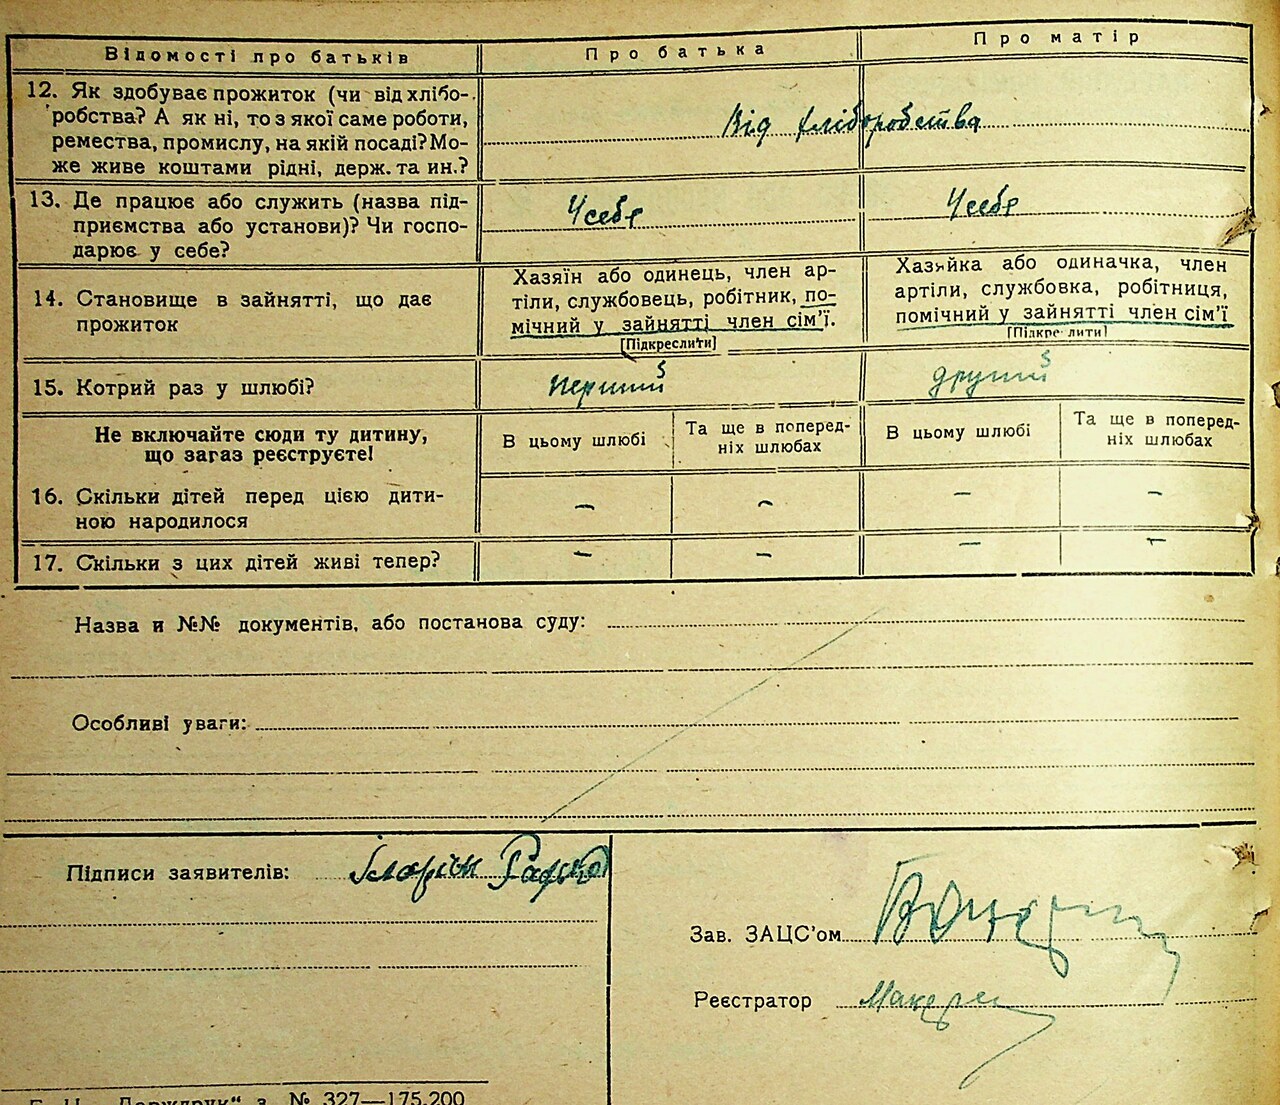 Відомості про батьків
Про батька
Про матір
12. Як здобуває прожиток (чи від хлібо-
робства? А як ні, то з якої саме роботи,
ремества, промислу, на якій посаді? Мо-
же живе коштами рідні, держ. та ин.?
Від хліборобства
13. Де працює або служить (назва під-
приємства або установи)? Чи госпо-
дарює у себе?
У себе
У себе
14. Становище в зайнятті, що дає
прожиток
Хазяїн або одинець, член ар-
тіли, службовець, робітник, по-
мічний у зайнятті член сім'ї.
[Підкреслити]
Хазяйка або одиначка, член
артіли, службовка, робітниця,
помічний у зайнятті член сім'ї
[Підкреслити]
15. Котрий раз у шлюбі?
перший
другий
Не включайте сюди ту дитину,
що загаз реєструєте!
В цьому шлюбі
Та ще в поперед-
ніх шлюбах
В цьому шлюбі
Та ще в поперед-
ніх шлюбах
16. Скільки дітей перед цією дити-
ною народилося
– – – –
17. Скільки з цих дітей живі тепер?
– – – –
Назва и №№ документів, або постанова суду:
Особливі уваги:
Підписи заявителів: Іларіон
Зав. ЗАЦС'ом
Реєстратор
"Держдрук" з. № 327—175.200